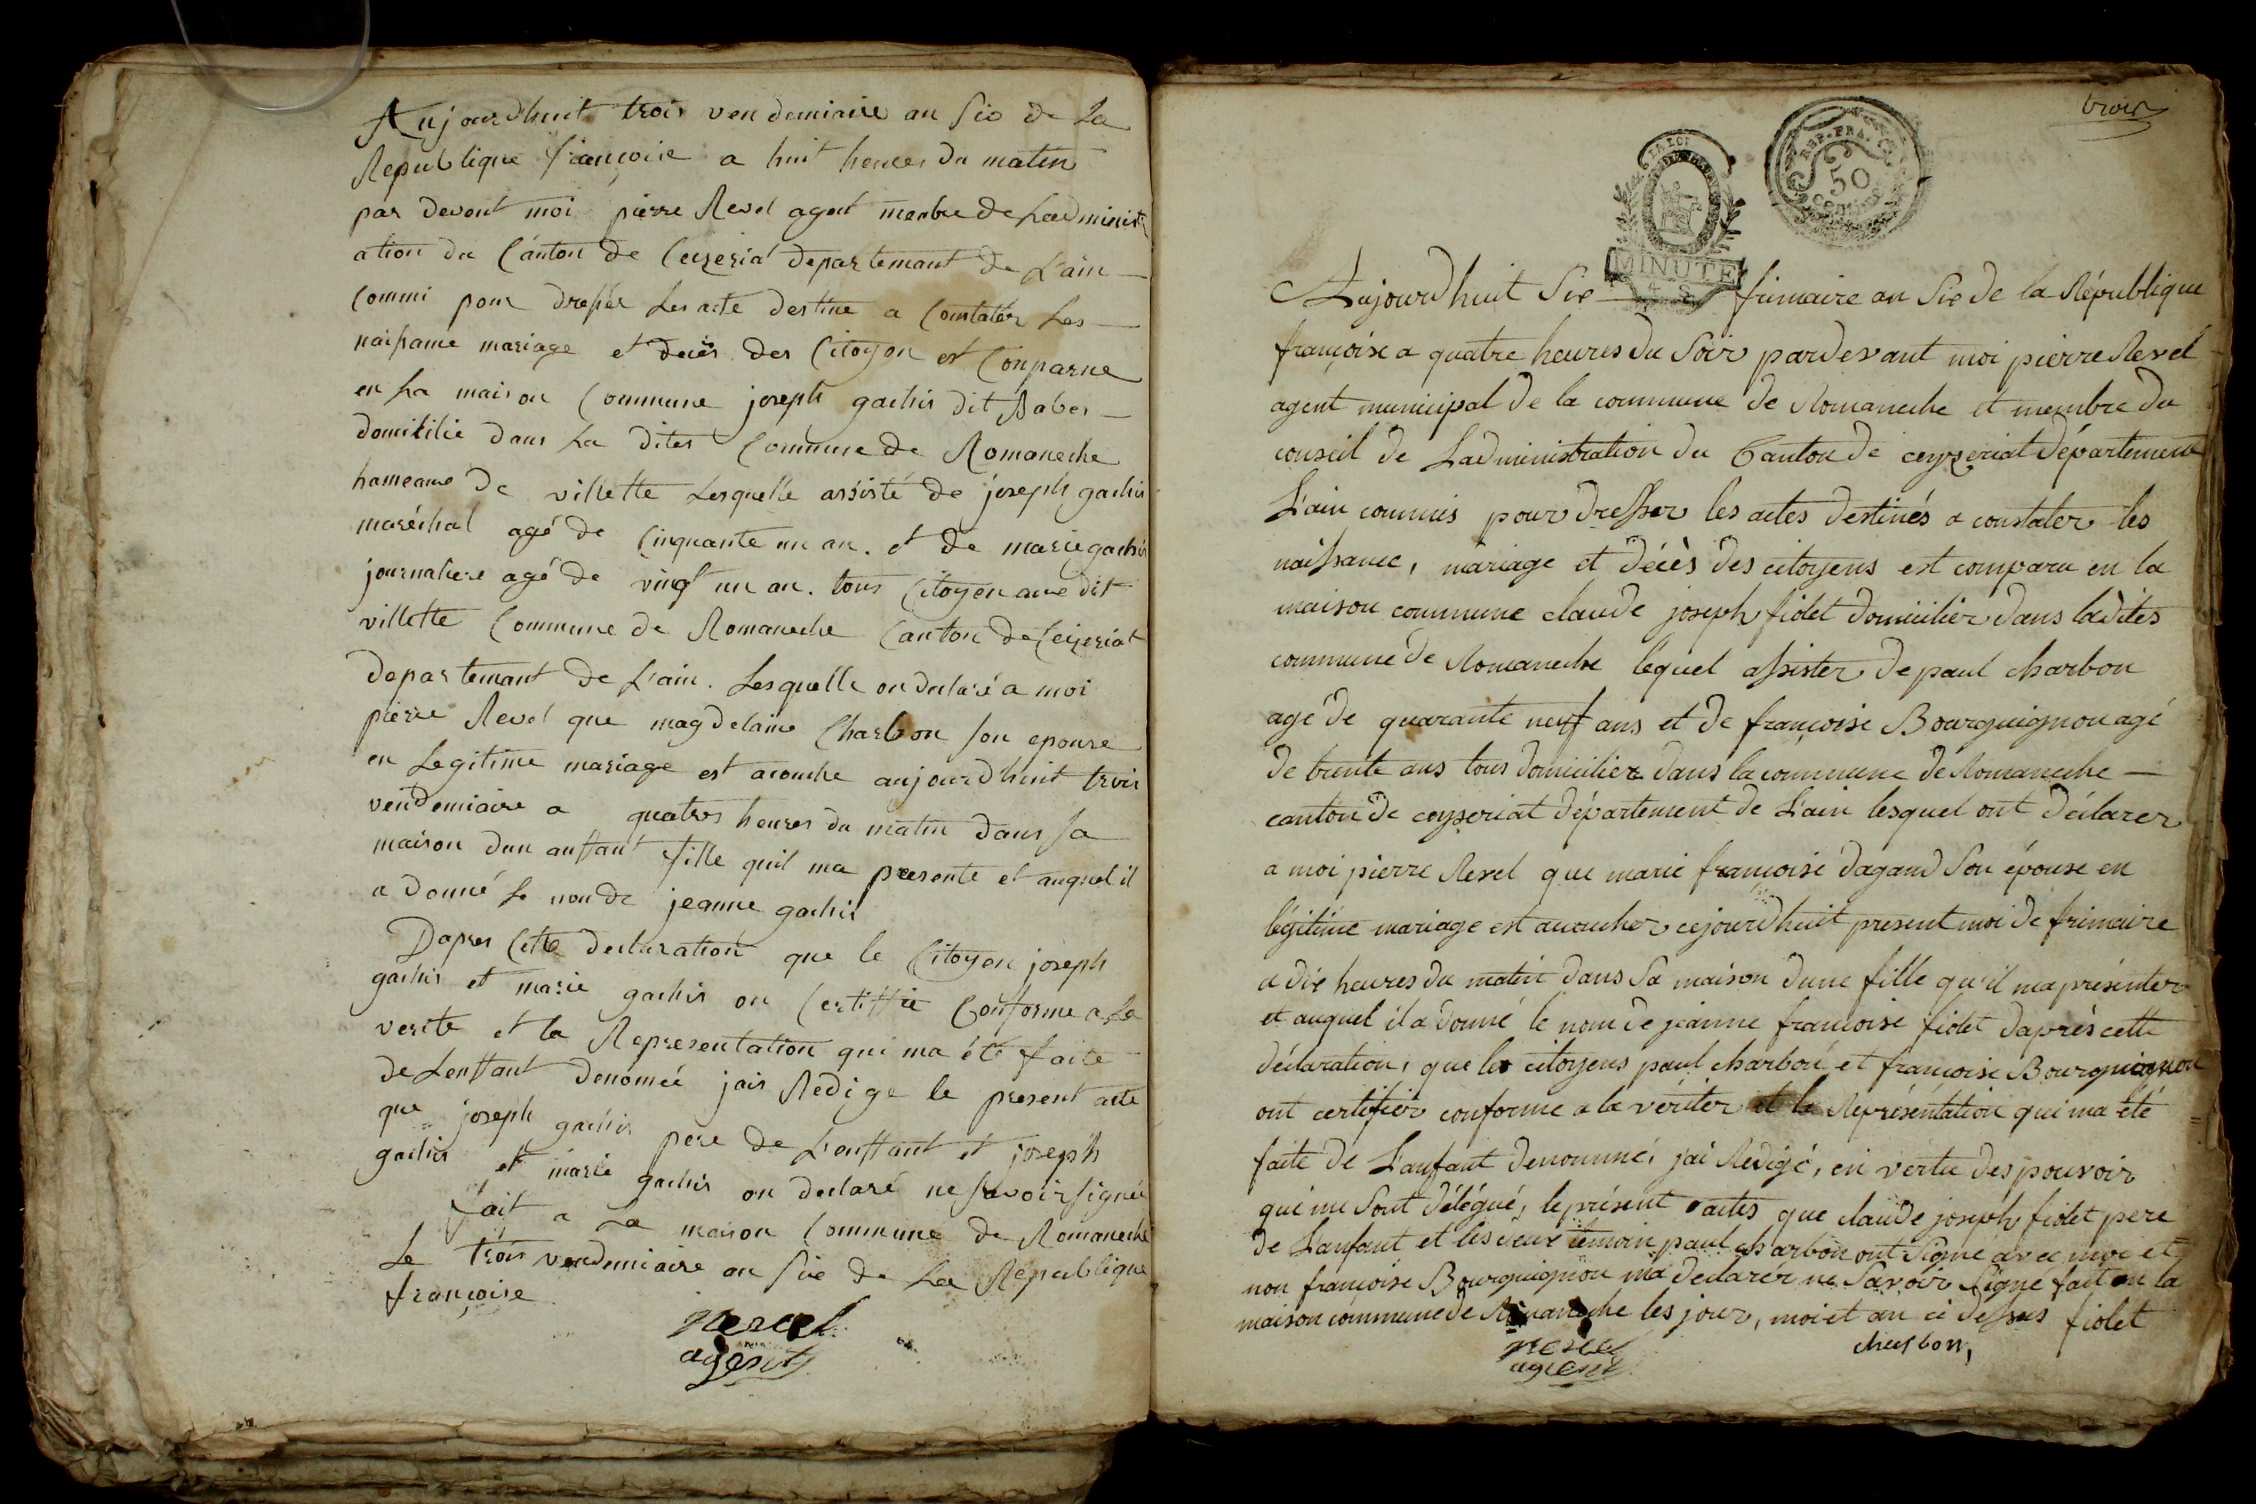 Aujourdhuit trois vendemiaire an Sis de La
Republique françoise a huit heures du matin
par devent moi pierre Revel agent membre de Ladministr
ation du Canton de Ceizeria departemant de L'ain
Commi pour dresser Les acte destine a Constater Les
naissance mariage et deces des Citoyon est Conparue
en La maison Commune joseph gachis dit Baber
domicilie dans La dites Commune de Romaneche
hameaue de villette Lesquelle assisté de joseph gachis
maréchal agé de Cinquante un an. et de marie gachis
journaliere agé de vingt un an. tous Citoyen aue dit
villette Commune de Romaneche Canton de Ceizeriat
departemant de L'ain. Lesquelle on declaré a moi
pierre Revel que magdelaine Charbon son epouse
en Legitime mariage est acouche aujourdhuit trois
vendemiaire a quatres heures du matin dans sa
maison dun anffant fille quil ma presente et auquel il
a donné Le non de jeanne gachis
Dapres Cette declaration que le Citoyen joseph
gachis et marie gachis on Certiffie Conforme a La
verite et la Representation qui ma été faite
de Lenffant denomée jais Redige le present acte
que joseph gachis pere de L'enffant et joseph
gachis et marie gachis on declaré ne savoir signée
fait a La maison Commune de Romaneche
Le trois vendemiaire an Sie de La Republique
françoise
revel
agent
trois
LA LOI
REP. FRA.
50
CENTIMES
MINUTE
Aujourdhuit Six frimaire an Six de la République
françoise a quatre heures du Soir pardevant moi pierre Revel
agent municipal de la commune de Romaneche et membre du
conseil de Ladministration du Canton de ceyzeriat département
L'ain commis pour dresser les actes destinés a constater les
naissance, mariage et décès des citoyens est comparu en la
maison commune claude joseph fiolet domicilier dans ladites
commune de Romaneche lequel assister de paul charbon
agé de quarante neuf ans et de françoise Bourguignon agé
de trente ans tous domicilier dans la commune de Romaneche
canton de ceyzeriat département de L'ain lesquel ont déclarer
a moi pierre Revel que marie françoise dagand Son épouse en
légitime mariage est acoucher cejourdhuit present moi de frimaire
a dix heures du matin dans Sa maison dune fille qu'il ma présenter
et auquel il a donné le nom de jeanne francoise fiolet daprès cette
déclaration, que les citoyens paul charbon et francoise Bourguignon
ont certifier conforme a la vériter et la Représentation qui ma été
faite de L'anfant denommé, jai Rédigé, en vertu des pouvoir
qui me Sont délégué, le présent actes que claude joseph fiolet pere
de L'anfant et les deux temoin paul charbon ont Signé avec moi et
non françoise Bourguignon ma declarér ne Savoir Signé fait en la
maison commune de Romaneche les jour, moi et an ci dessus fiolet
charbon,
revel
agent